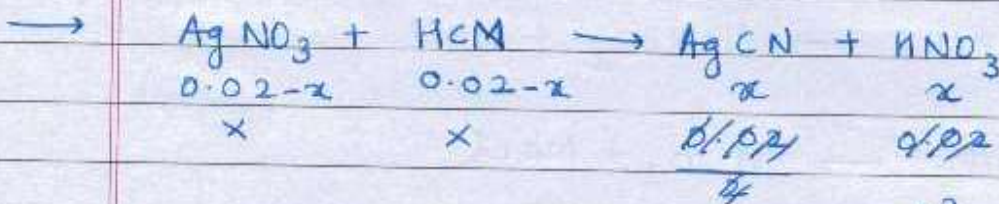 → AgNO₃ + HCN → AgCN + HNO₃
0.02-x 0.02-x x x
x x